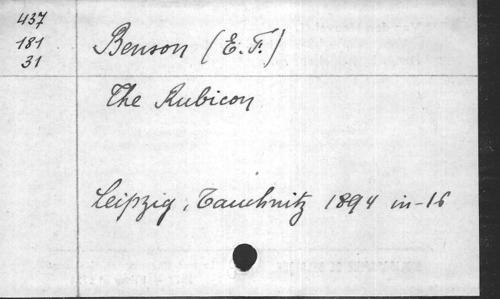 437
181
31
Benson (E. F.)
The Rubicon
Leipzig, Tauchnitz 1894 in-16